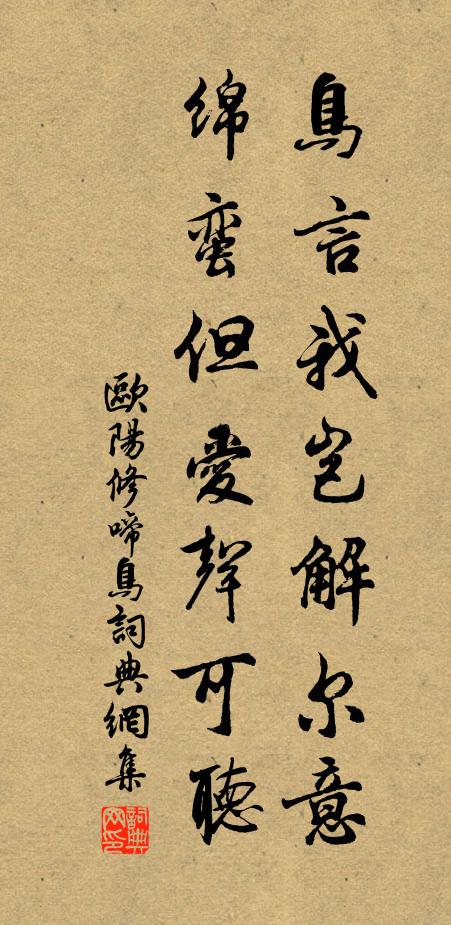 鳥言我岂解尔意
綿蛮但愛聲可聽
歐陽修啼鳥詞典網集
詞典网印